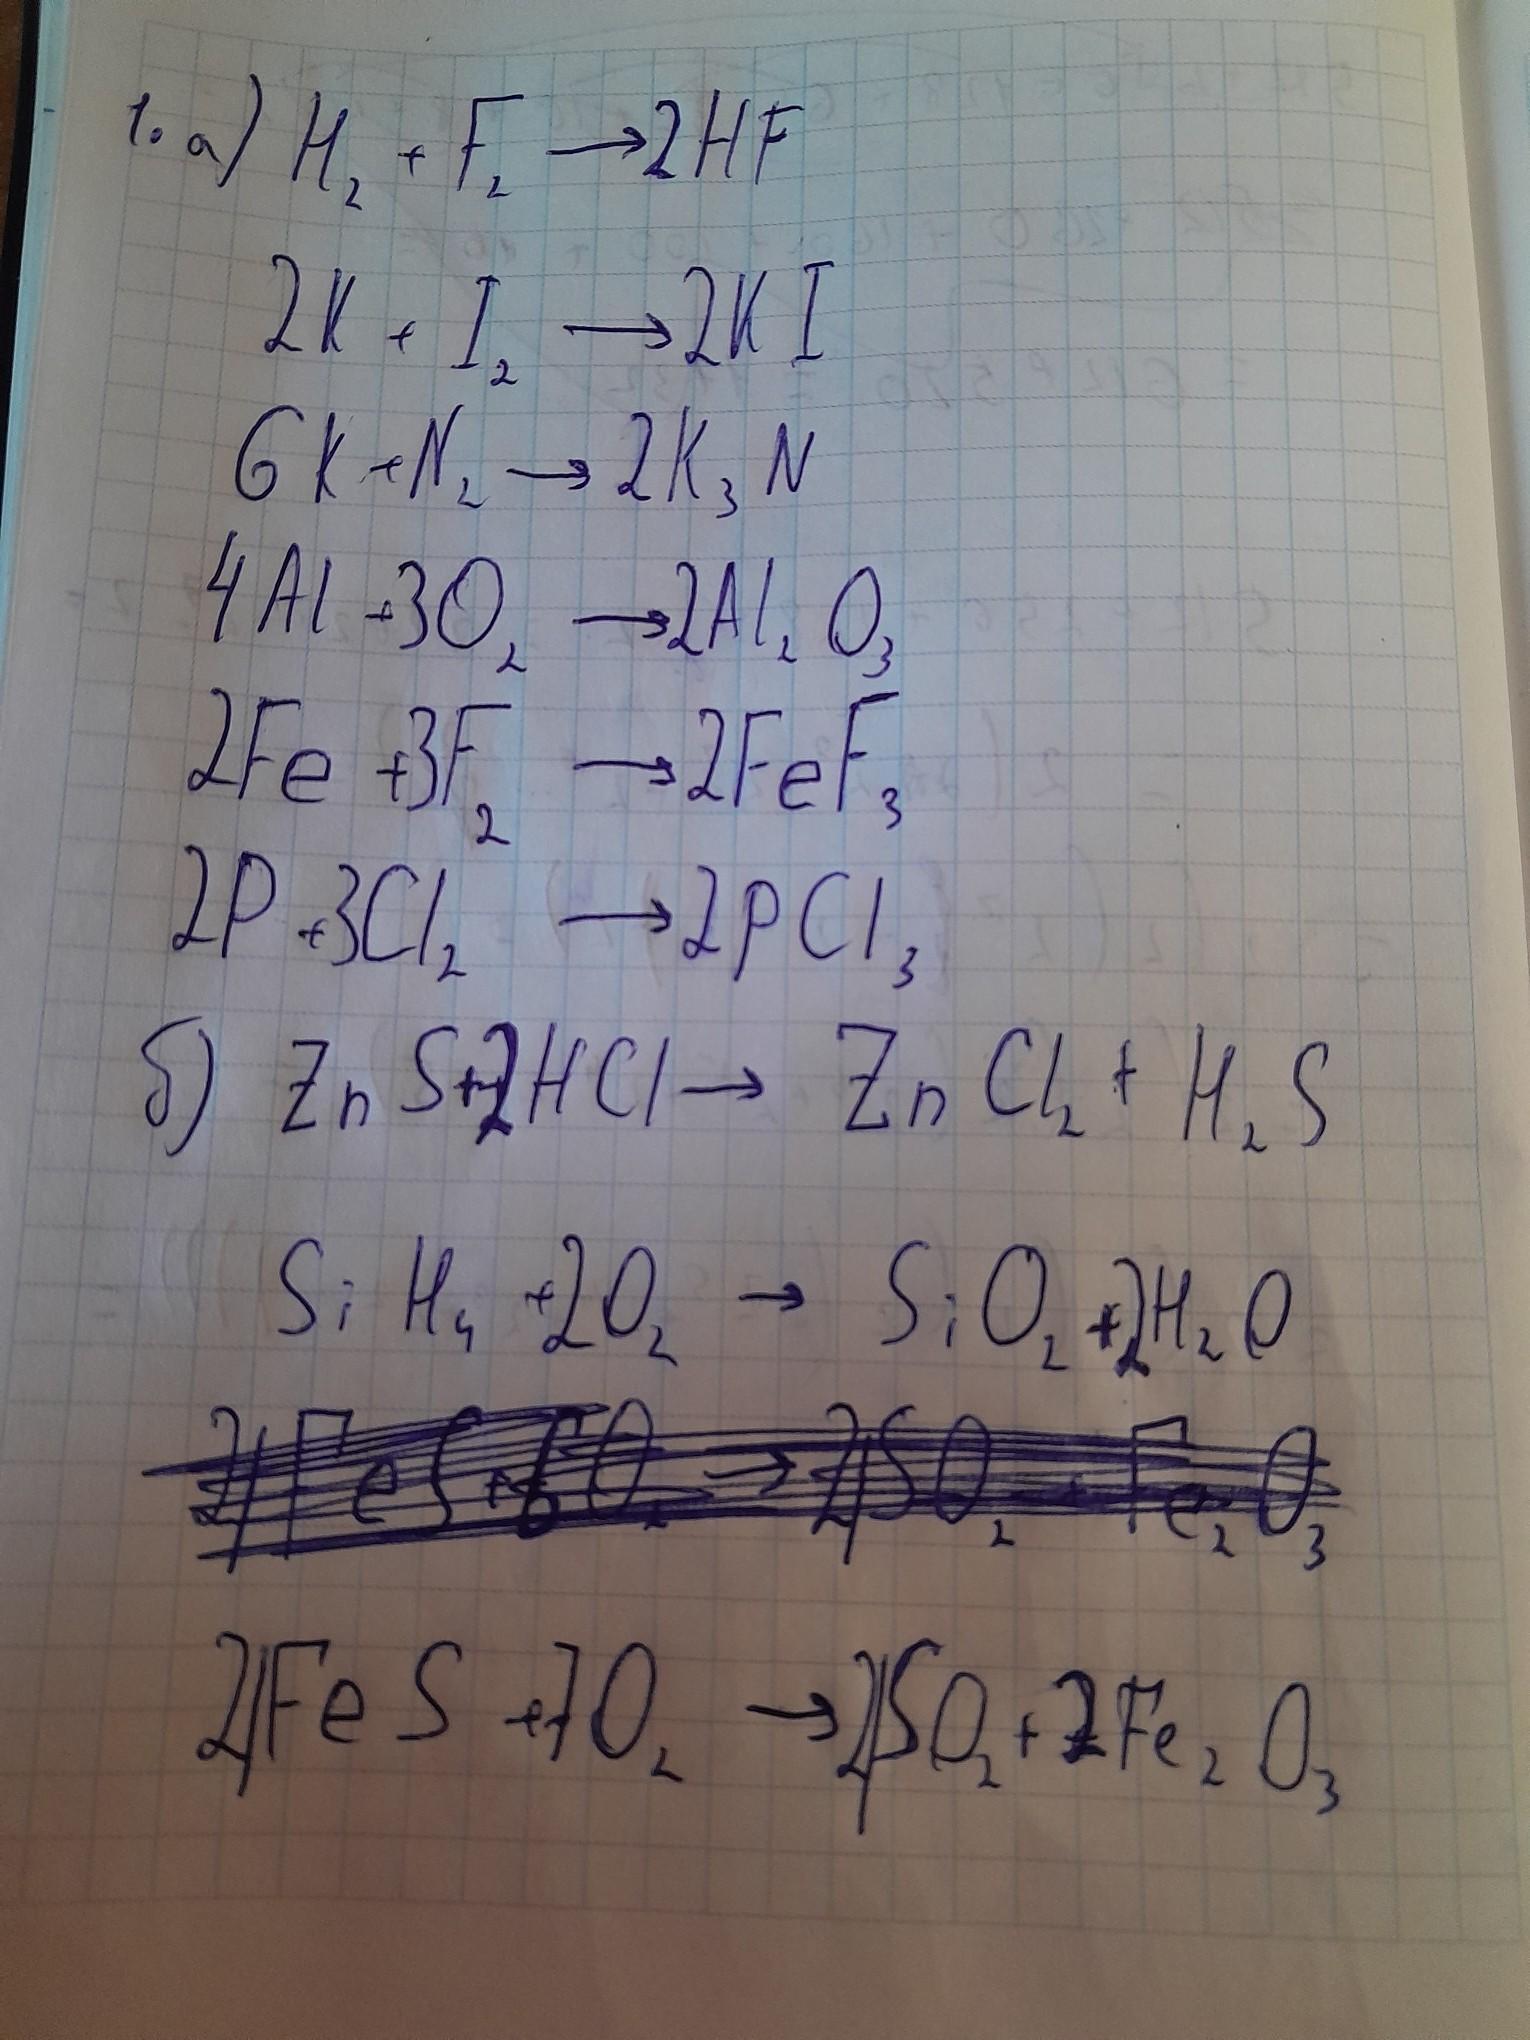 1. а) H₂ + F₂ → 2HF
2K + I₂ → 2KI
6K + N₂ → 2K₃N
4Al + 3O₂ → 2Al₂O₃
2Fe + 3F₂ → 2FeF₃
2P + 3Cl₂ → 2PCl₃
б) ZnS + 2HCl → ZnCl₂ + H₂S
SiH₄ + 2O₂ → SiO₂ + 2H₂O
4FeS + 7O₂ → 4SO₂ + 2Fe₂O₃